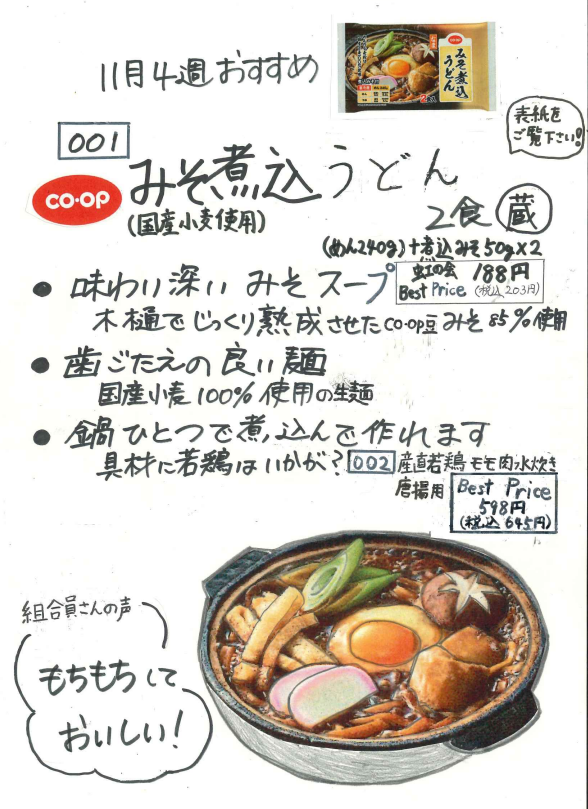 11月4週おすすめ
みそ煮込
うどん
2食入
表紙を
ご覧下さい!
001
CO·OP みそ煮込うどん
(国産小麦使用)
2食 蔵
(めん240g)+煮込みそ50g×2
虹の会 188円
Best Price (税込203円)
● 味わい深い みそスープ
木樋でじっくり熟成させたCO-OP豆みそ85%使用
● 歯ごたえの良い麺
国産小麦100%使用の生麺
● 鍋ひとつで煮込んで作れます
具材に若鶏はいかが? 002 産直若鶏モモ肉水炊き
唐揚用
Best Price
598円
(税込645円)
組合員さんの声
もちもちして
おいしい!